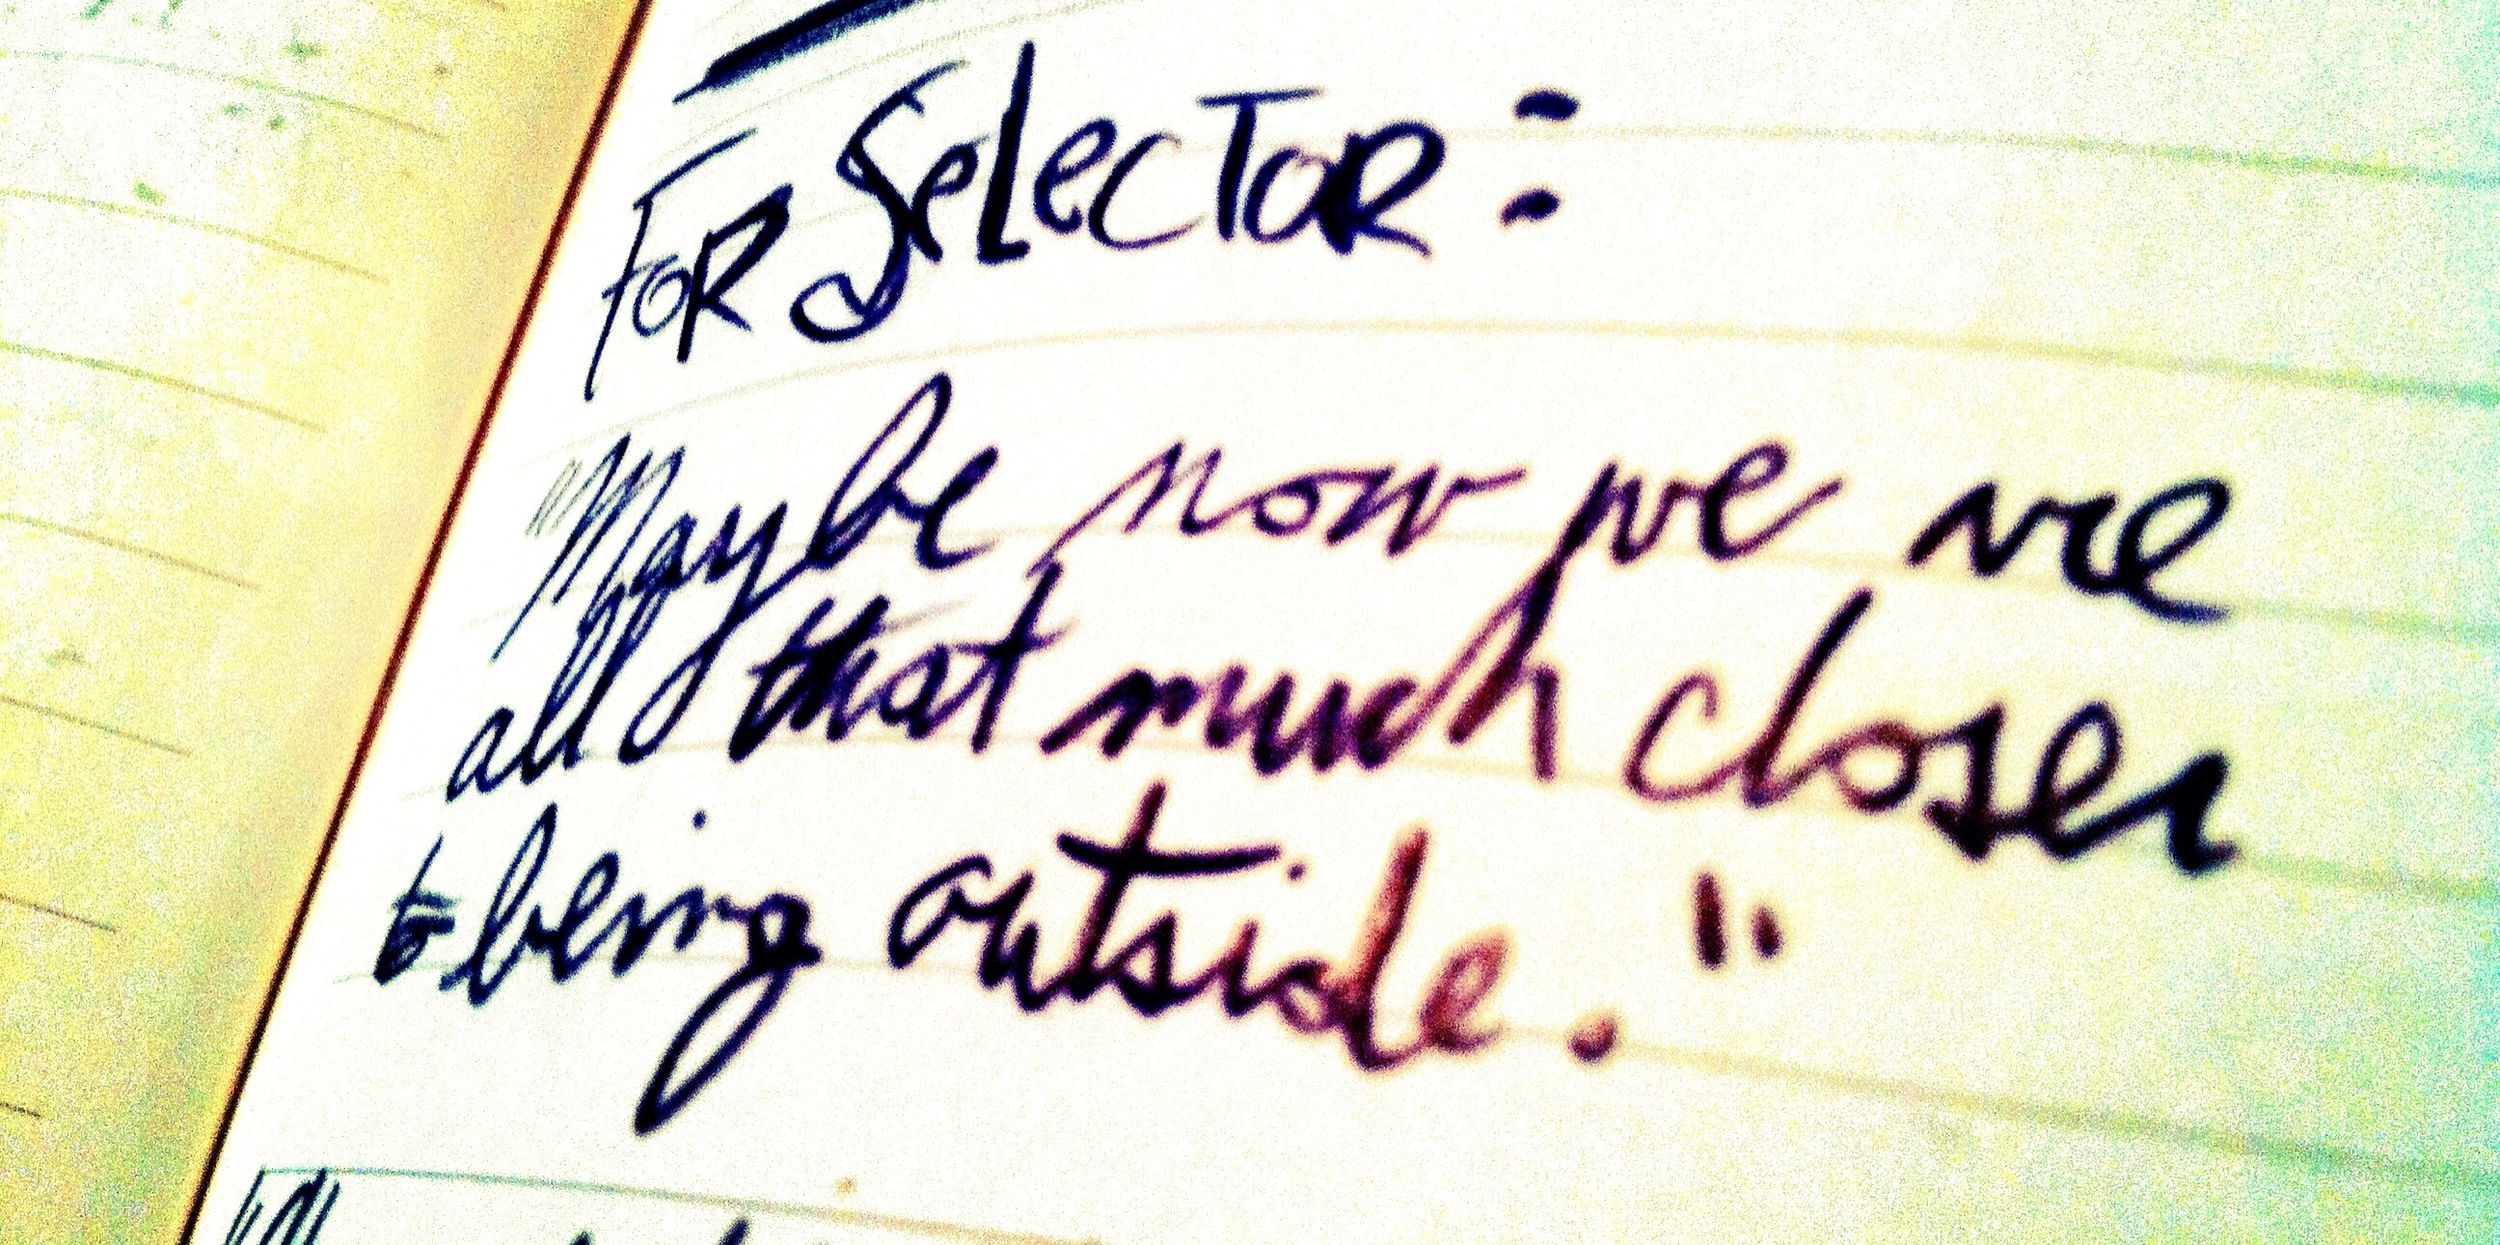 FOR SELECTOR:
"Maybe now we are
all that much closer
to being outside."